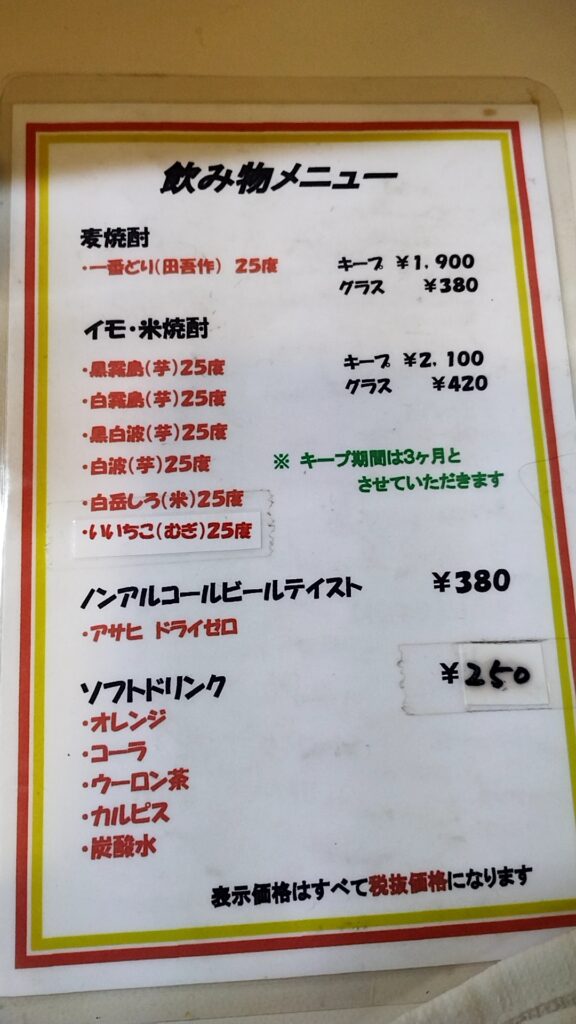 飲み物メニュー
麦焼酎
・一番どり(田吾作) 25度 キープ ¥1,900
グラス ¥380
イモ・米焼酎
・黒霧島(芋)25度 キープ ¥2,100
グラス ¥420
・白霧島(芋)25度
・黒白波(芋)25度
・白波(芋)25度
※ キープ期間は3ヶ月と
させていただきます
・白岳しろ(米)25度
・いいちこ(むぎ)25度
ノンアルコールビールテイスト ¥380
・アサヒ ドライゼロ
ソフトドリンク ¥250
・オレンジ
・コーラ
・ウーロン茶
・カルピス
・炭酸水
表示価格はすべて税抜価格になります